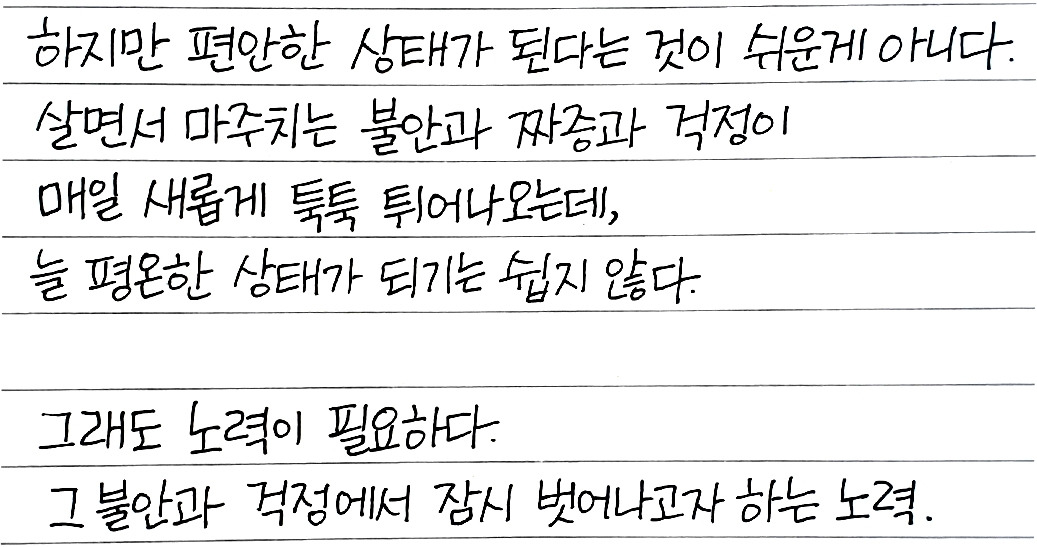 하지만 편안한 상태가 된다는 것이 쉬운게 아니다.
살면서 마주치는 불안과 짜증과 걱정이
매일 새롭게 툭툭 튀어나오는데,
늘 평온한 상태가 되기는 쉽지 않다.
그래도 노력이 필요하다.
그 불안과 걱정에서 잠시 벗어나고자 하는 노력.